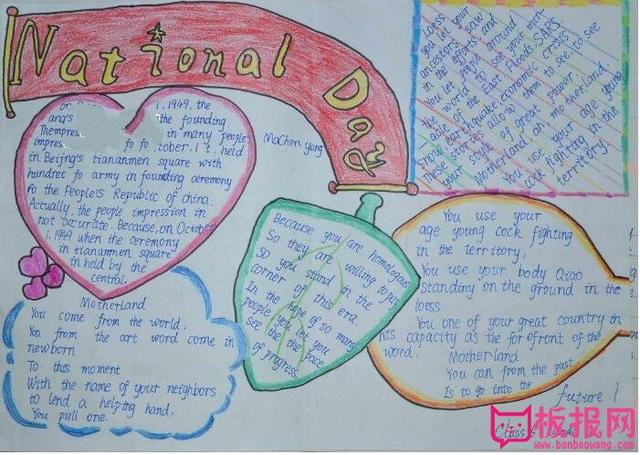 National Day
MaChen yang
1, 1949, the
ang's the founding
Thempres in many people's
impres fo fo tober. 1 t. held
in Beijng's tiananmen square with
hundret fo army in founding ceremony
fo the People's Republic of china.
Actually, the people impression in
not accurate. Because, on October
1, 1949 when the ceremony
in tiananmen square
in held by the
central.
Motherland
You come from the world.
You from the art word come in
newborn
To this moment
With the name of your neighbors
to lend a helping hand,
You pull one.
Because you are homologous
So they are willing to pay
So you stand in the
corner of this era.
In the hope of so many
people you let you
see the the pace
of progress
loss
You let your
ancestors saw
the efforts and
You let people around
the world to see your
of the East
Snow, earthquake, economic crisis
Floods, SARS,
These stories allow them to see, to see
your style of great power.
Motherland, ah, motherland,
You use your age young
cock fighting in the
territory.
You use your
age young cock fighting
in the territory.
You use your body Qiao
standing on the ground in the
loess
You one of your great country in
his capacity as the forefront of the
word.
Motherland
You can from the past
Is to go into the
future!
Class
板报网
www.banbaowang.com